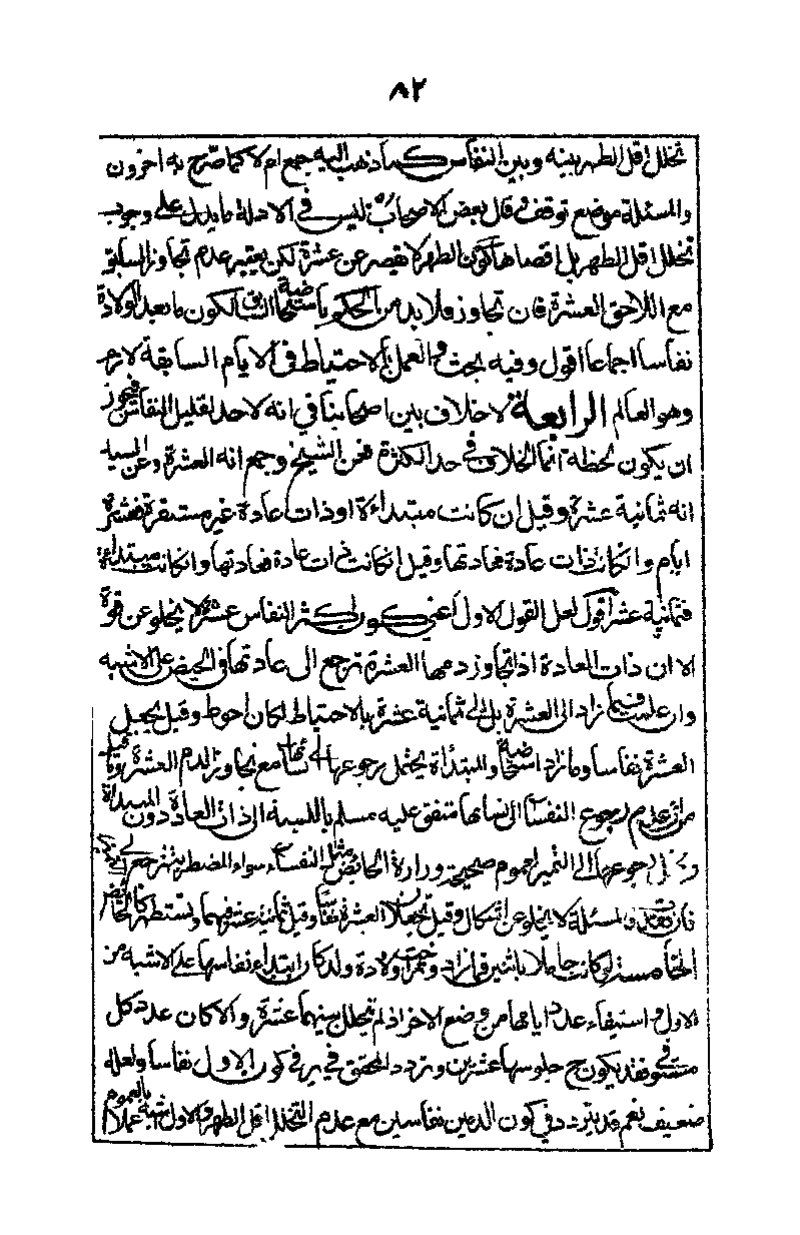 ٨٢
تخلل اقل الطهر بينه وبين النفاس كما ذهب اليه جمع ام لا كما صرح به اخرون
والمسئلة موضع توقف قال بعض الاصحاب ليس في الادلة ما يدل على وجوب
تخلل اقل الطهر بل اقصاها كون الطهر لا يقصر عن عشرة لكن يعتبر عدم تجاوز السابق
مع اللاحق العشرة فان تجاوز فلا بد من الحكم باستحاضة السابق لكون ما بعد الولادة
نفاسا اجماعا اقول وفيه بحث والعمل بالاحتياط في الايام السابقة لازم
وهو العالم الرابعة لا خلاف بين اصحابنا في انه لا حد لقليل النفاس فيجوز
ان يكون لحظة انما الخلاف في حد الكثرة فعن الشيخ وجمع انه العشرة وعن السيد
انه ثمانية عشرة وقيل ان كانت مبتداءة او ذات عادة غير مستقرة فعشرة
ايام وان كان ذات عادة فعادتها وقيل ان كانت ذات عادة فعادتها وان كانت مبتداءة
فثمانية عشر اقول لعل القول الاول اعني كون اكثر النفاس عشرة لا يخلو عن قوة
الا ان ذات العادة اذا تجاوز دمها العشرة ترجع الى عادتها في الحيض على الاشبه
وان عملت فيما زاد الى العشرة بل الى ثمانية عشرة بالاحتياط لكان احوط وقيل يجعل
العشرة نفاسا وما زاد استحاضة والمبتداة يحتمل رجوعها الى نسائها مع تجاوز الدم العشرة
من عدم رجوع النفساء الى نسائها متفق عليه مسلم بالنسبة الى ذات العادة دون المبتداة
رجوعها الى التميز لعموم صحيحة زرارة الحائض مثل النفساء سواء المضطربة ترجع الى
فان فقدت والمسئلة لا يخلو عن اشكال وقيل تجعلان العشرة نفاسا وقيل ثمانية عشر فيهما وتستظهر كالحائض
مسئلة لو كانت حاملا باثنين فما زاد ولادة ولد كان ابتداء نفاسها على الاشبه من
الاول واستيفاء عدد ايامها من وضع الاخر اذ لم تتخلل بينهما عشرة والا كان عدد كل
مستوفى فقد يكون ح جلوسها عشرين وتردد المحقق في بر في كون الاول نفاسا ولعله
ضعيف نعم قد يتردد في كون الدمين نفاسين مع عدم التخلل اقل الطهر والاول اشبه عملا بالعموم